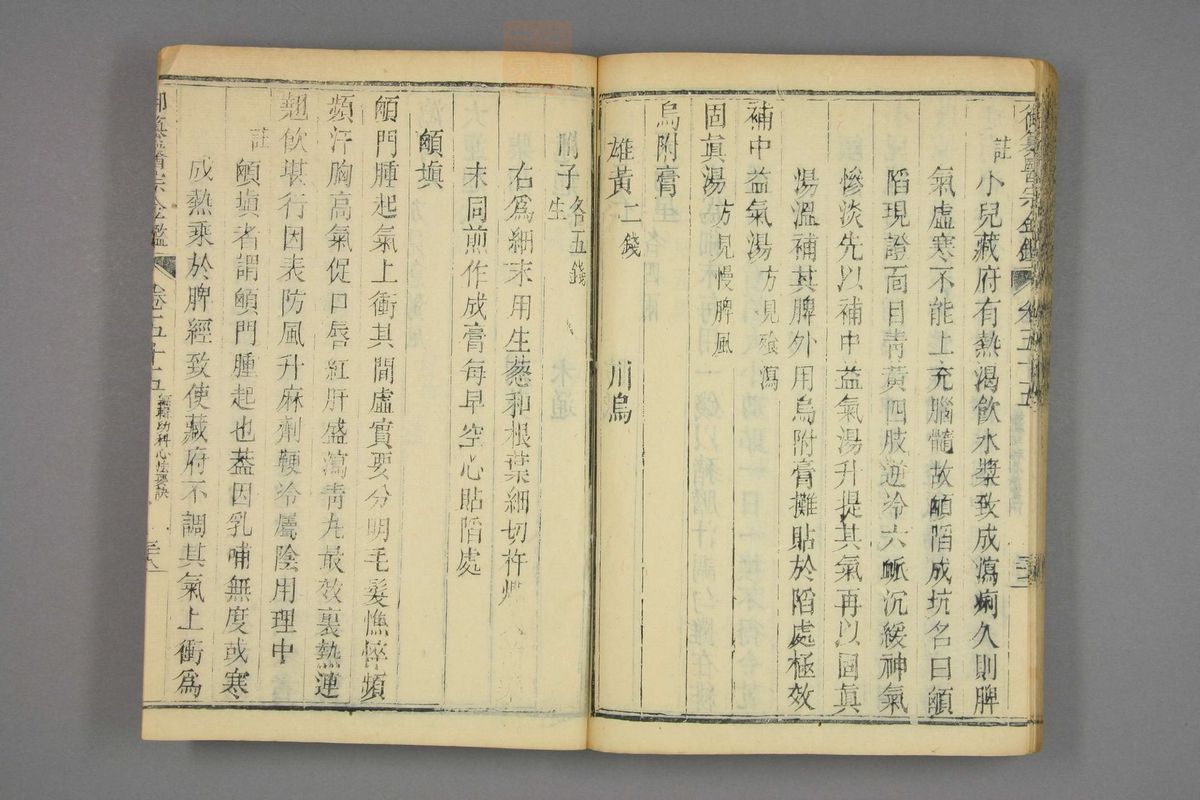 御纂醫宗金鑑 卷五十五
註 小兒藏府有熱渴飲水漿致成瀉痢久則脾
氣虛寒不能上充腦髓故顖陷成坑名曰顖
陷現證面目青黃四肢逆冷六脈沉緩神氣
慘淡先以補中益氣湯升提其氣再以固眞
湯溫補其脾外用烏附膏攤貼於陷處極效
補中益氣湯 方見飱瀉
固眞湯 方見慢脾風
烏附膏
雄黃二錢 川烏
附子各五錢生
右爲細末用生葱和根葉細切杵爛
末同煎作成膏每早空心貼陷處
顖塡
顖門腫起氣上衝其間虛實要分明毛髮憔悴頻
頻汗胸高氣促口唇紅肝盛瀉青丸最效裏熱連
翹飲堪行因表防風升麻劑鞕冷屬陰用理中
註 顖塡者謂顖門腫起也蓋因乳哺無度或寒
或熱乘於脾經致使藏府不調其氣上衝爲
御纂醫宗金鑑 卷五十五 編輯幼科心法要訣 三八